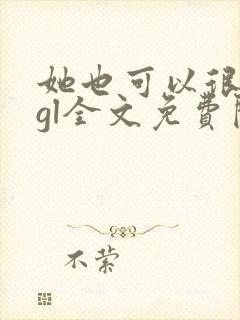 她也可以很
gl全文免费
不萦